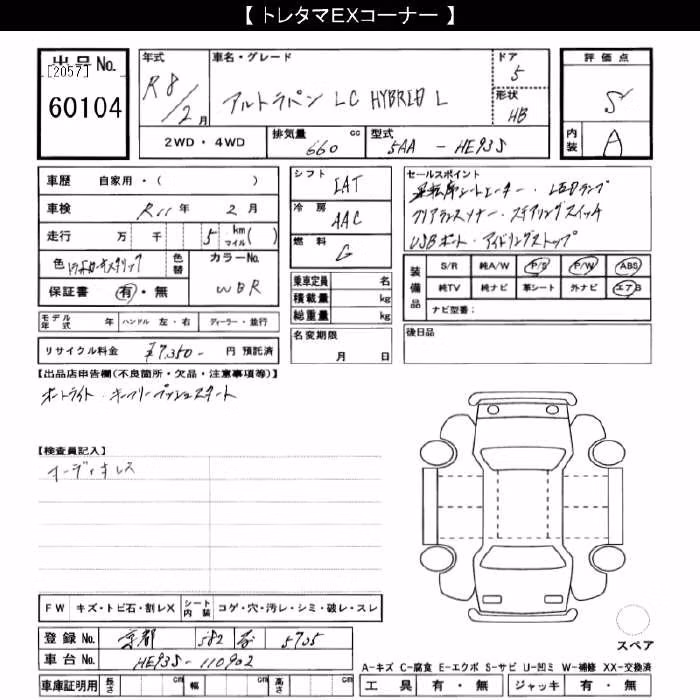 【 トレタマEXコーナー 】
出品 No.
[2057]
60104
年式
R8/2月
車名・グレード
アルトラパン LC HYBRID L
ドア
5
形状
HB
評価点
S
内装
A
2WD・4WD
排気量
660 cc
型式
5AA - HE93S
車歴 自家用・( )
車検 R11年 2月
走行 万 千 5 km マイル( )
色
色替
カラーNo.
WBR
保証書 有・無
モデル年式 年 ハンドル 左・右 ディーラー・並行
リサイクル料金 ¥7,350- 円 預託済
シフト
IAT
冷房
AAC
燃料
G
乗車定員 名
積載量 kg
総重量 kg
名変期限
月 日
セールスポイント
運転席シートヒーター・LEDランプ
クリアランスソナー・ステアリングスイッチ
USBポート・アイドリングストップ
装備品
S/R 純A/W P/S P/W ABS
純TV 純ナビ 革シート 外ナビ エアB
ナビ型番:
後日品
【出品店申告欄(不良箇所・欠品・注意事項等)】
オートライト・キーフリープッシュスタート
【検査員記入】
オーディオレス
FW キズ・トビ石・割レX
シート内装 コゲ・穴・汚レ・シミ・破レ・スレ
登録 No. 京都 582 5705
車台 No. HE93S-110902
車庫証明用 長さ cm 幅 cm 高さ cm
スペア
A-キズ C-腐食 E-エクボ S-サビ U-凹ミ W-補修 XX-交換済
工具 有・無 ジャッキ 有・無